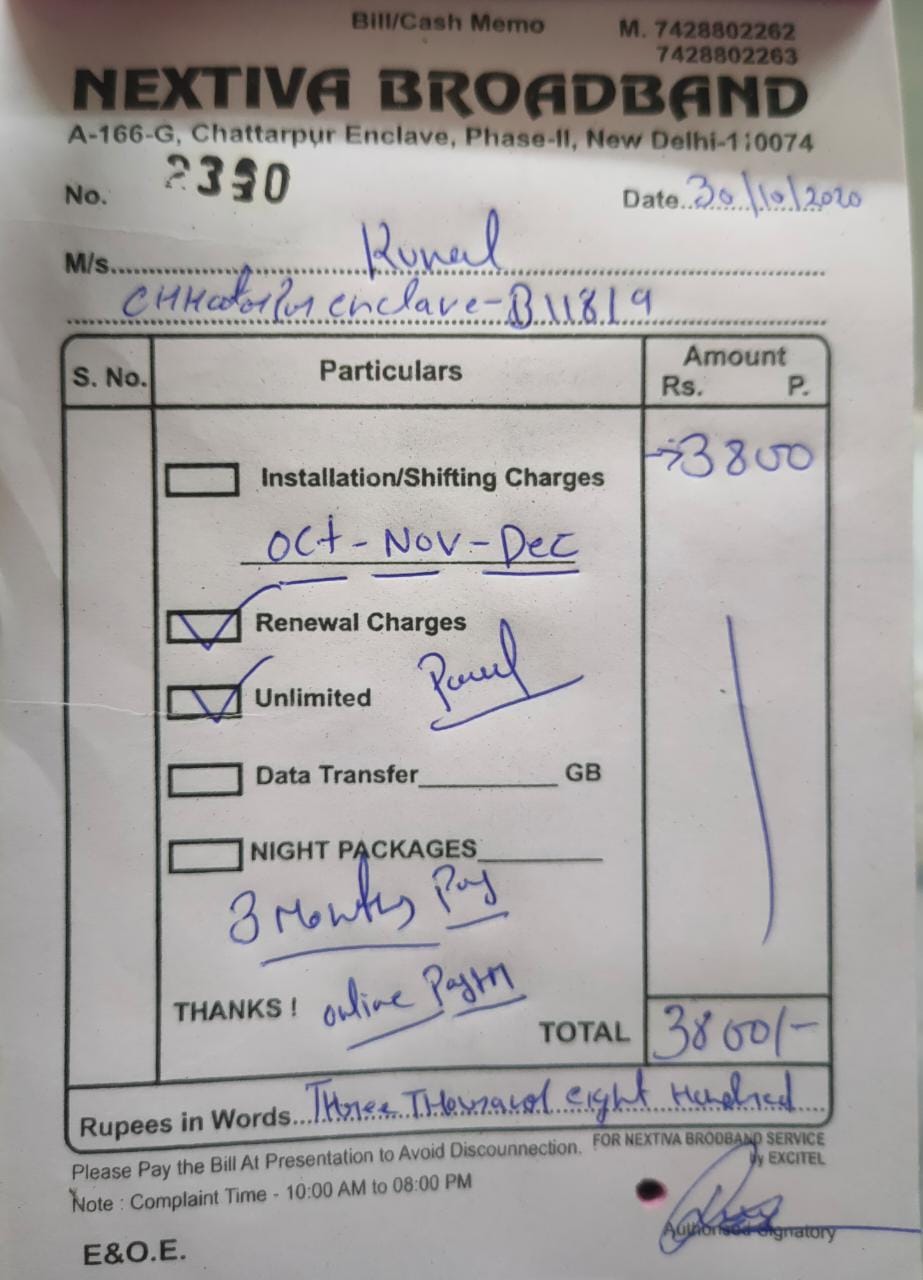 Bill/Cash Memo M. 7428802262
7428802263
NEXTIVA BROADBAND
A-166-G, Chattarpur Enclave, Phase-II, New Delhi-110074
No. Date..30/10/2020
M/s. Kunal
enclave-B 118/9
S. No. Particulars Amount
Rs. P.
Installation/Shifting Charges →3800
Oct-Nov-Dec
Renewal Charges
Unlimited
Data Transfer________ GB
NIGHT PACKAGES________
3 Months Pay
THANKS ! online Paytm
TOTAL 3800/-
Rupees in Words...Three Thousand eight Hundred
Please Pay the Bill At Presentation to Avoid Discounnection. FOR NEXTIVA BRODBAND SERVICE
by EXCITEL
Note : Complaint Time - 10:00 AM to 08:00 PM
Authorised Signatory
E&O.E.